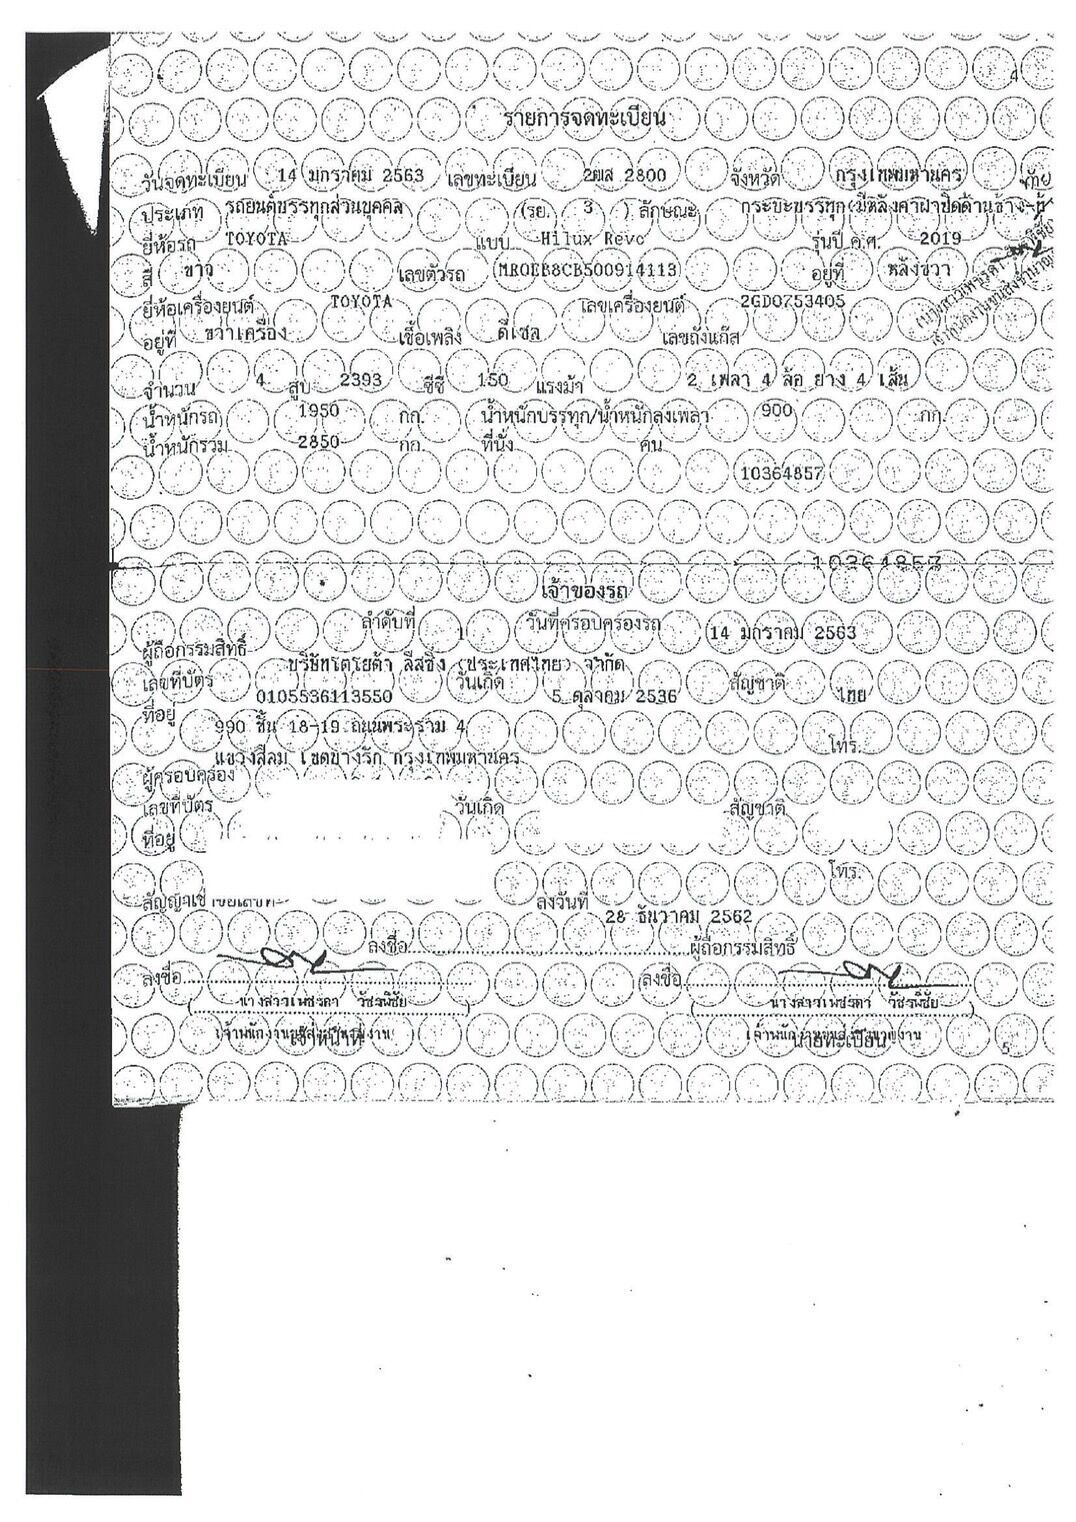 4
รายการจดทะเบียน
วันจดทะเบียน 14 มกราคม 2563 เลขทะเบียน 2ฒส 2800 จังหวัด กรุงเทพมหานคร
ประเภท รถยนต์บรรทุกส่วนบุคคล (รย. 3 ) ลักษณะ กระบะบรรทุก(มีหลังคาฝาปิดด้านข้าง-
ยี่ห้อรถ TOYOTA แบบ Hilux Revo รุ่นปี ค.ศ. 2019
สี ขาว เลขตัวรถ (MR0EB8CB500914113) อยู่ที่ หลังขวา
ยี่ห้อเครื่องยนต์ TOYOTA เลขเครื่องยนต์ 2GD0753405
อยู่ที่ ขวาเครื่อง เชื้อเพลิง ดีเซล เลขถังแก๊ส
จำนวน 4 สูบ 2393 ซีซี 150 แรงม้า 2 เพลา 4 ล้อ ยาง 4 เส้น
น้ำหนักรถ 1950 กก. น้ำหนักบรรทุก/น้ำหนักลงเพลา 900 กก.
น้ำหนักรวม 2850 กก. ที่นั่ง คน
10364857
10364857
เจ้าของรถ
ลำดับที่ 1 วันที่ครอบครองรถ 14 มกราคม 2563
ผู้ถือกรรมสิทธิ์ บริษัทโตโยต้า ลีสซิ่ง (ประเทศไทย) จำกัด
เลขที่บัตร 0105536113550 วันเกิด 5 ตุลาคม 2536 สัญชาติ ไทย
ที่อยู่ 990 ชั้น 18-19 ถนนพระราม 4
แขวงสีลม เขตบางรัก กรุงเทพมหานคร โทร.
ผู้ครอบครอง
เลขที่บัตร วันเกิด สัญชาติ
ที่อยู่
โทร.
สัญญาเช่าซื้อเลขที่ ลงวันที่ 28 ธันวาคม 2562
ลงชื่อ ผู้ถือกรรมสิทธิ์
ลงชื่อ ลงชื่อ
(นางสาวเพชรดา วัชรพิชัย) (นางสาวเพชรดา วัชรพิชัย)
เจ้าพนักงานขนส่งชำนาญงาน เจ้าพนักงานขนส่งชำนาญงาน
เจ้าหน้าที่ นายทะเบียน
5